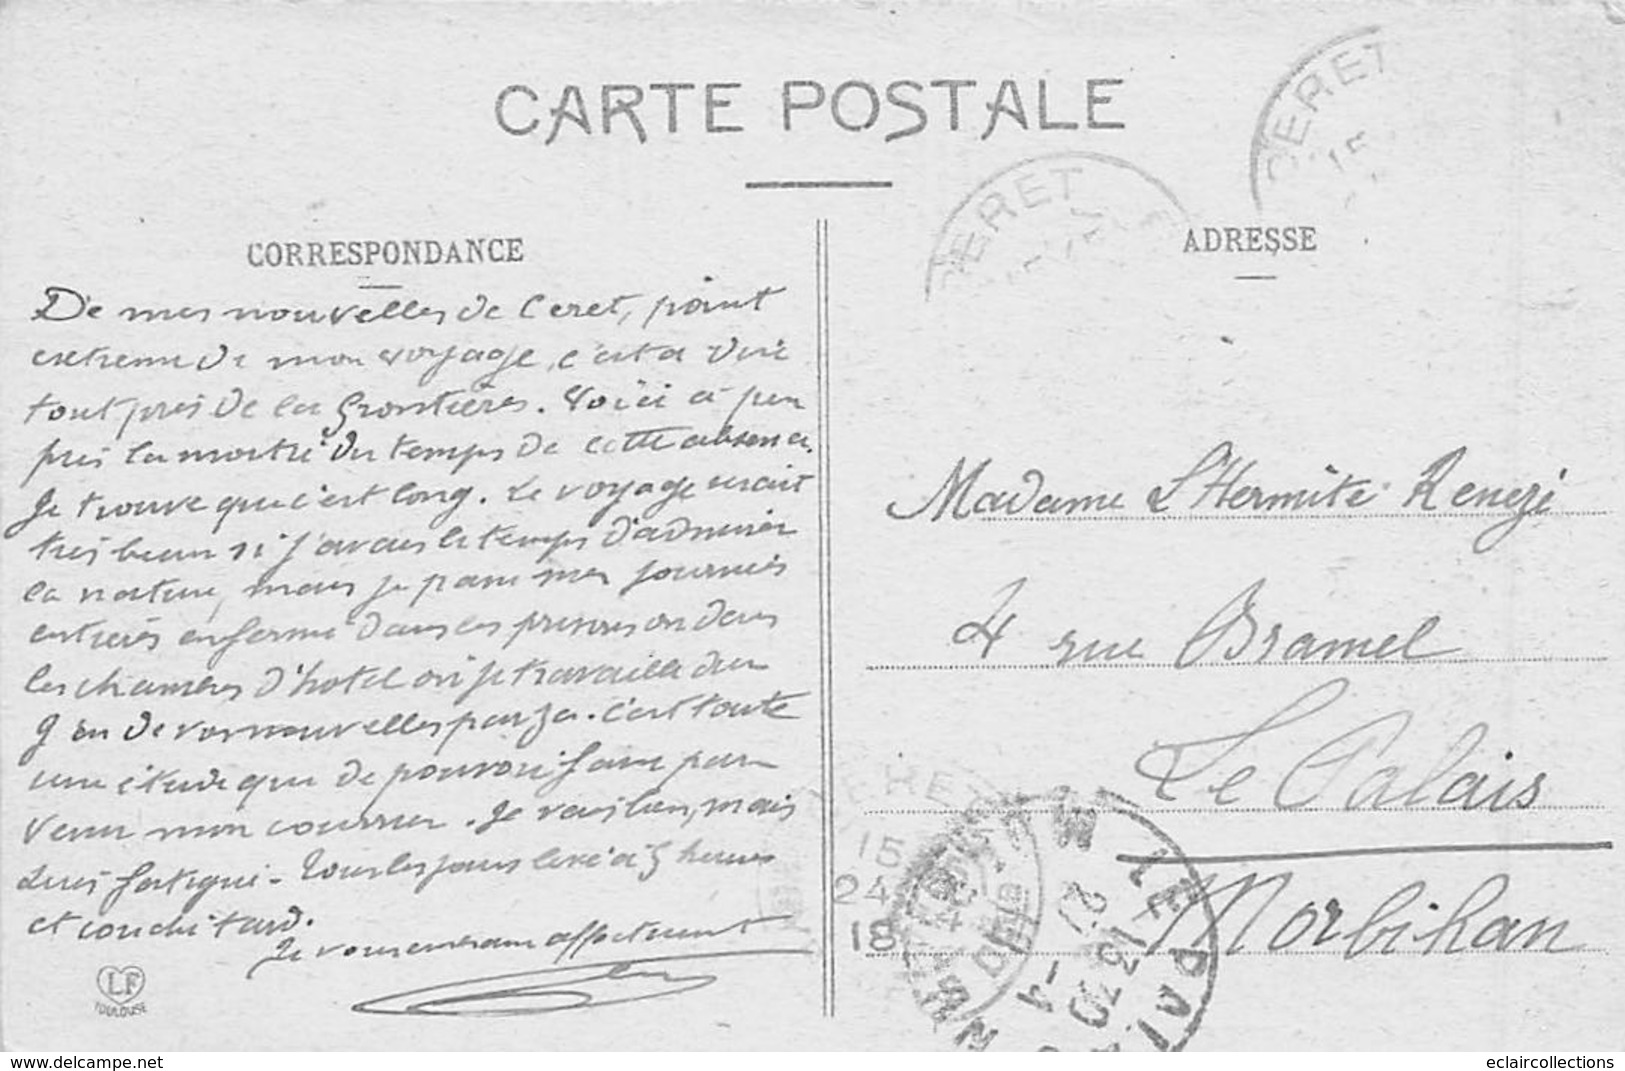 CARTE POSTALE
CERET
15
CERET
CORRESPONDANCE
ADRESSE
De mes nouvelles de Ceret, point
extreme de mon voyage, c'est a dire
tout pres de la frontières. Voici à peu
pres la moitié du temps de cette absence.
Je trouve que c'est long. Le voyage serait
tres beau si j'avais le temps d'admirer
la nature, mais je passe mes journées
entières enfermé dans les prisons ou dans
les chambres d'hotel où je travaille
de vos nouvelles par ça. C'est toute
une étude que de pouvoir faire
venir mon courrier. Je vais bien, mais
tres fatigué - Tous les jours levé à 5 heures
et couché tard.
Je vous embrasse affectueusement
LF
TOULOUSE
Madame L'Hermite Renezé
4 rue Bramel
Le Palais
Morbihan
CERET
15
24
18
LE PALAIS
eclaircollections